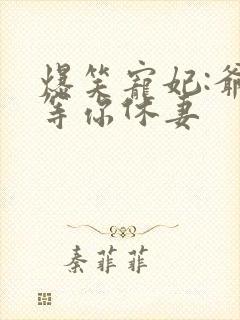 爆笑寵妃:爺
等你休妻
秦菲菲